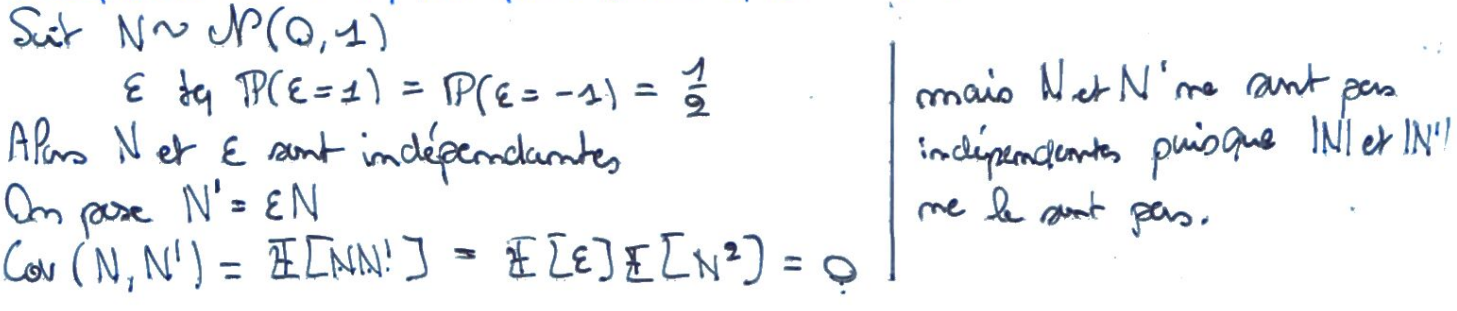 Soit N ~ 𝒩(0,1)
ε tq ℙ(ε=1) = ℙ(ε=-1) = 1/2
Alors N et ε sont indépendantes
On pose N' = εN
Cov(N,N') = 𝔼[NN'] = 𝔼[ε]𝔼[N²] = 0
mais N et N' ne sont pas
indépendantes puisque |N| et |N'|
ne le sont pas.